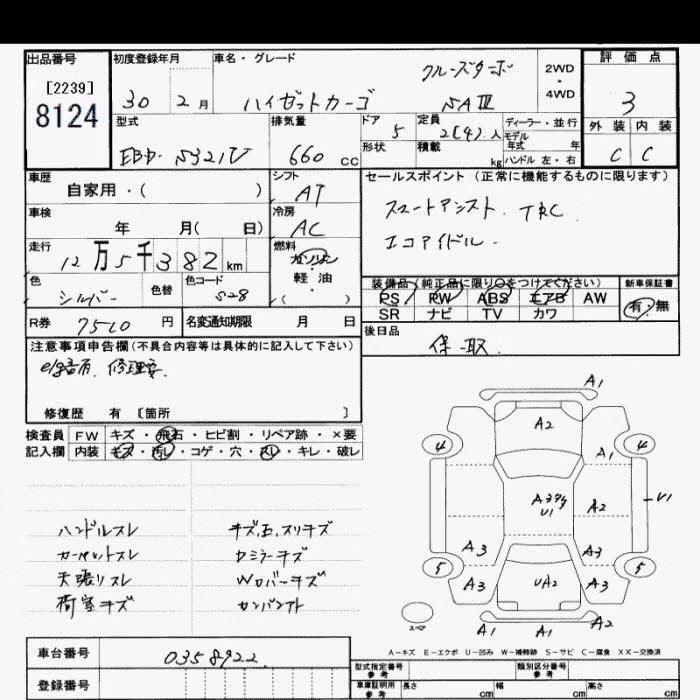 出品番号 初度登録年月 車名・グレード 評価点
[2239] クルーズターボ 2WD
8124 30 2月 ハイゼットカーゴ SAⅢ ・4WD 3
型式 排気量 ドア 5 定員 2(4)人 ディーラー・並行 外装 内装
EBD-S321V 660cc 形状 積載 kg モデル年式 年 C C
ハンドル 左・右
車歴 シフト セールスポイント(正常に機能するものに限ります)
自家用・( ) AT スマートアシスト. TRC
車検 冷房 エコアイドル.
年 月( 日) AC
走行 燃料
12万5千382km ガソリン
色 色替 色コード 軽油
シルバー S28 ( )
装備品(純正品に限り○をつけてください) 新車保証書
PS PW ABS エアB AW 有・無
SR ナビ TV カワ
R券 7510円 名変通知期限 月 日 後日品
保・取
注意事項申告欄(不具合内容等は具体的に記入して下さい)
e/g音有. 修理要.
修復歴 有 [箇所 ]
検査員 FW キズ・飛石・ヒビ割・リペア跡・×要
記入欄 内装 キズ・汚レ・コゲ・穴・スレ・キレ・破レ
ハンドルスレ キズ,エ,スリキズ
カーペットスレ Dミラーキズ
天張リスレ Wロバーキズ
荷室キズ カンバンアト
A1
A2
4 4
A1
A3 U1 A2 U1
A3 A3
5 5
A3 UA2 A3
スペア A1 A1 A2
A-キズ E-エクボ U-凹み W-補修跡 S-サビ C-腐食 XX-交換済
車台番号 0358922
登録番号
型式指定番号 参考 類別区分番号 参考
車庫証明用 参考 長さ cm 幅 cm 高さ cm